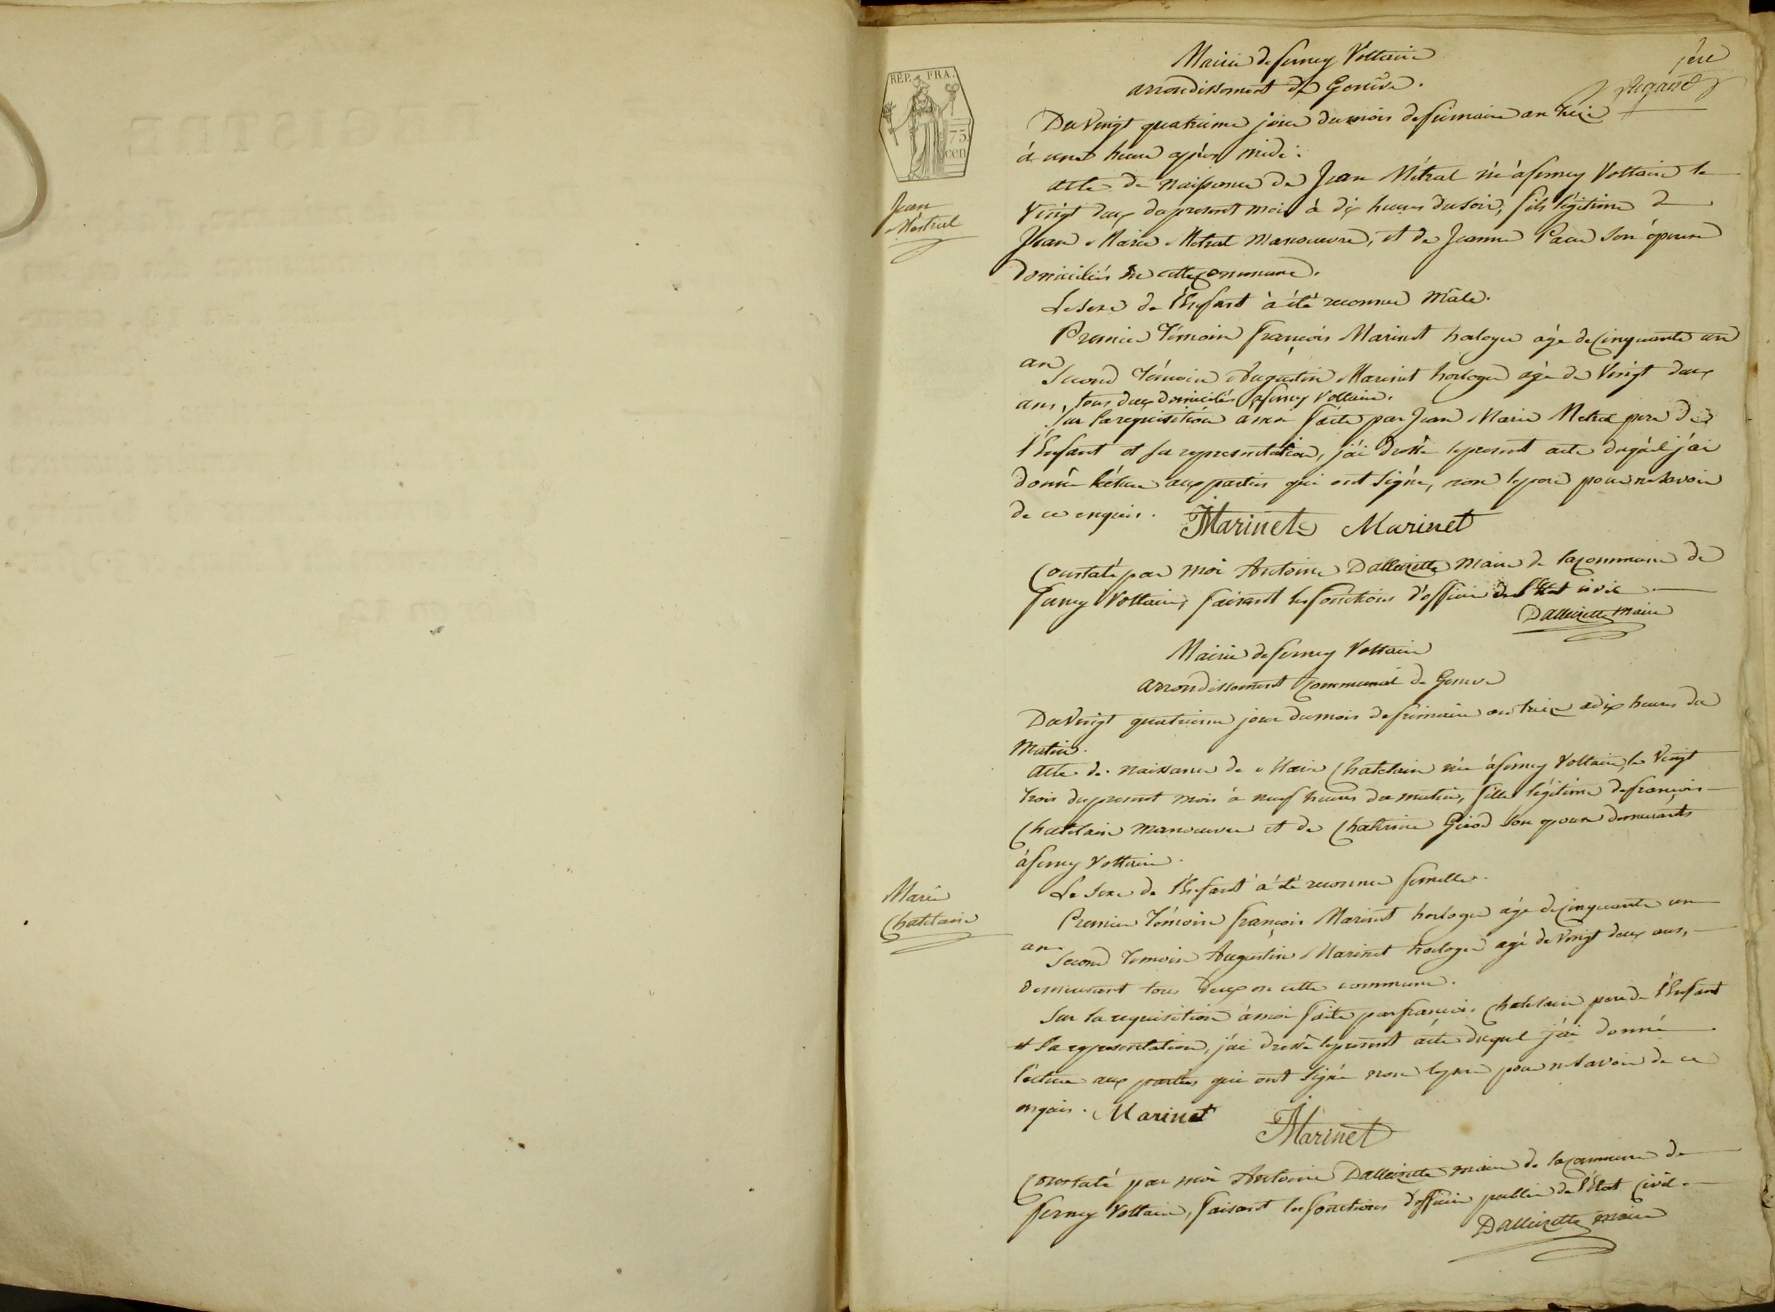 Mairie de ferney Voltaire
arrondissement de Genève.
1ere
Regard
REP. FRA.
75
cen
Du Vingt quatrieme jour du mois de frimaire an treize
à une heure après midi.
acte de naissance de Jean Métral né à ferney Voltaire le
Jean
Métral
Vingt deux du present mois à dix heures du soir, fils légitime de
Jean Marie Métral manoeuvre, et de Jeanne son épouse
domiciliés en cette commune.
Le sexe de l'Enfant à été reconnu mâle.
Premier témoin françois Marinet horloger agé de Cinquante un
an
Second témoin Augustin Marinet horloger agé de Vingt deux
ans, tous deux domiciliés à ferney Voltaire.
Sur la requisition à moi faite par Jean Marie Metral pere de
l'Enfant et sa representation, j'ai dressé le present acte duquel j'ai
donné lécture aux parties qui ont signé, non le pere pour ne savoir
de ce enquis.
Marinet Marinet
Constaté par moi Antoine Dalleizette maire de la commune de
ferney Voltaire, faisant les fonctions d'officier de l'Etat civil
Dalleizette maire
Mairie de ferney Voltaire
arrondissement communal de Geneve
Du Vingt quatrieme jour du mois de frimaire an treize a dix heures du
matin.
acte de naissance de Marie Chatelain née à ferney Voltaire, le Vingt
trois du present mois à neuf heures du matin, fille légitime de françois
Chatelain manoeuvre et de Chaterine Girod son epouse demeurants
à ferney Voltaire.
Le sexe de l'Enfant à été reconnu femelle.
Marie
Chatelain
Premier témoin françois Marinet horloger agé de cinquante un
an
Second temoin Augustin Marinet horloger agé de Vingt deux ans,
demeurant tous deux en cette commune.
Sur la requisition à moi faite par françois Chatelain pere de l'Enfant
et sa representation, j'ai dressé le present acte duquel j'ai donné
lécture aux parties qui ont signé non le pere pour ne savoir de ce
enquis. Marinet
Marinet
Constaté par moi Antoine Dalleizette maire de la commune de
ferney Voltaire, faisant les fonctions d'officier public de l'Etat civil.
Dalleizette maire